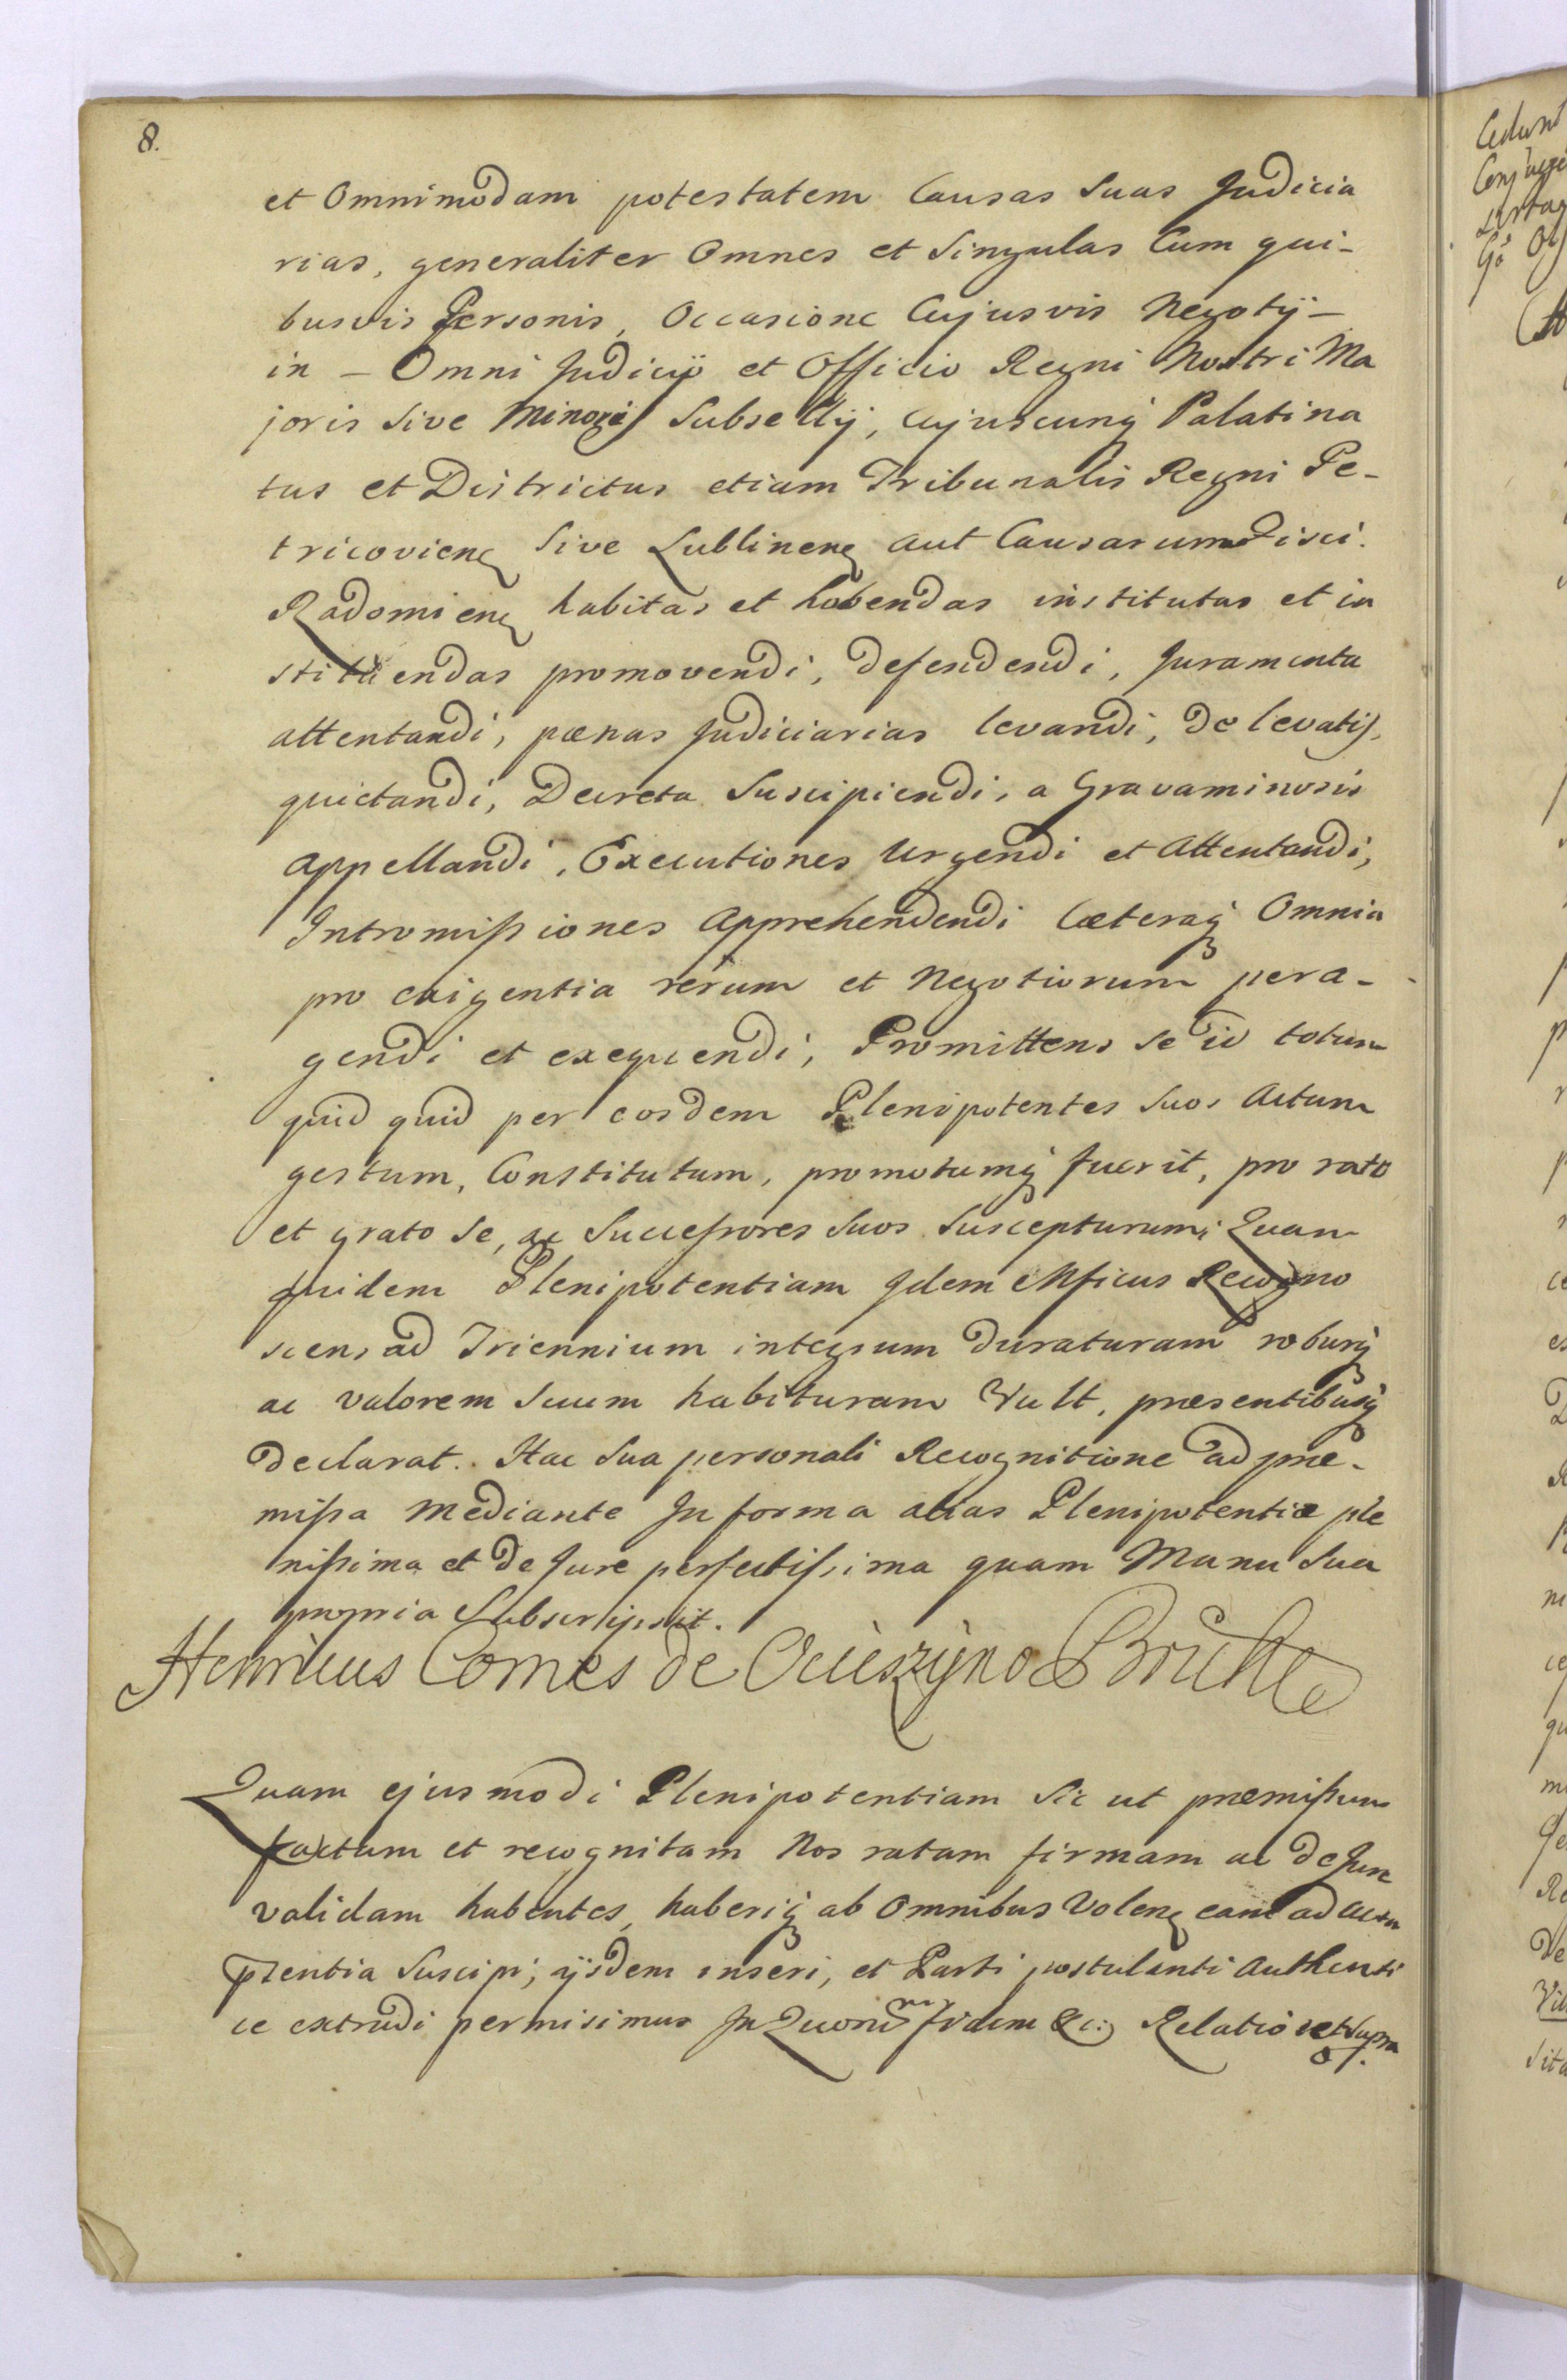 8.
et Omnimodam potestatem Causas Suas Judicia
rias, generaliter Omnes et Singulas Cum qui-
busvis Personis, Occasione Cujusvis Negotÿ -
in - Omni Judicijs et Officio Regni Nostri Ma
joris Sive Minoris Subsellÿ, Cujuscunq Palatina
tus et Districtus etiam Tribunalis Regni Pe-
tricovienς Sive Lublinenς aut Causarum Fisci.
Radomienς habitas et habendas institutas et in
stituendas promovendi, defendendi, Juramenta
attentandi, pænas Judiciarias levandi, de levatis,
quietandi, Decreta Suscipiendi, a Gravaminosis
Appellandi, Executiones Urgendi et Attentandi,
Intromissiones Apprehendendi Cæteraq Omnia
pro exigentia rerum et Negotiorum pera-
gendi et exequendi, Promittens Se id totum
quid quid per eosdem Plenipotentes Suos Actum
gestum, Constitutum, promotumq fuerit, pro rato
et grato Se, ac Successores Suos Suscepturum; Quam
quidem Plenipotentiam Idem Mficus Recogno
scens ad Triennium integrum duraturam roburq
ac valorem Suum habituram Vult, præsentibusq
declarat. Hac Sua personali Recognitione ad præ-
missa Mediante In forma alias Plenipotentiæ ple
nissima et de Jure perfectissima quam Manu Sua
propria Subscripsit.
Henricus Comes de Ocieszÿno Brühl
Quam ejusmodi Plenipotentiam Sic ut præmissum
factam et recognitam Nos ratam firmam ac de Jure
validam habentes, haberiq ab Omnibus Volenς eam ad Acta
pzentia Suscipi, ijsdem inseri, et Parti postulanti Authenti
ce extradi permisimus In Quorum fidem &c: Relatio ut Supra